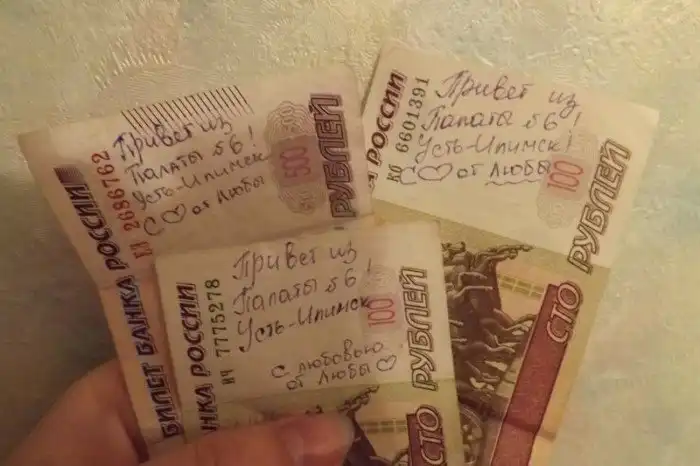 Привет из
Палаты №6!
Усть-Илимск
С ♡ от Любы
500
РУБЛЕЙ
БИЛЕТ БАНКА РОССИИ
2686762
Привет из
Палаты №6!
Усть-Илимск!
С ♡ от Любы
100
СТО РУБЛЕЙ
РОССИИ
6601391
Привет из
Палаты №6!
Усть-Илимск
С любовью
от Любы ♡
100
СТО РУБЛЕЙ
БАНКА РОССИИ
ИЧ 7775278